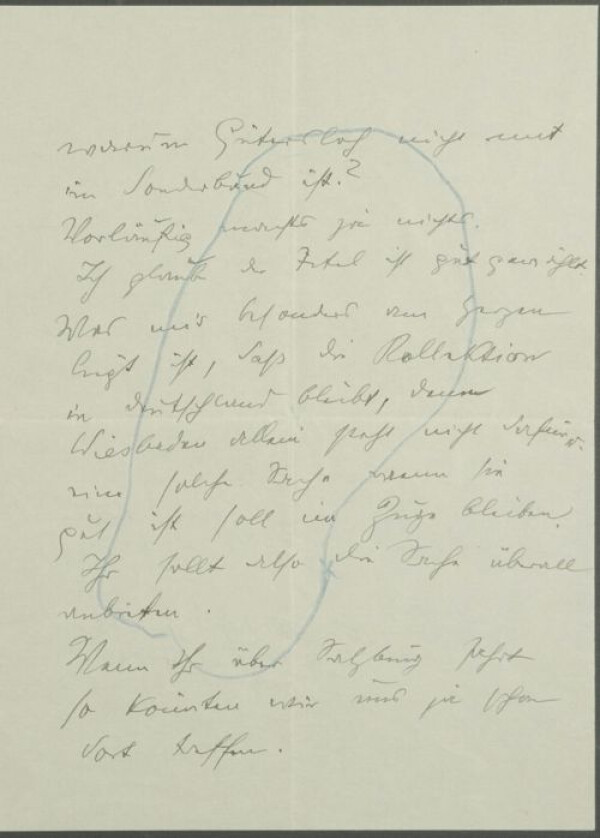 warum Gütersloh nicht mit
im Sonderbund ist?
Vorläufig machts ja nichts.
Ich glaub der Titel ist gut gewählt.
Was mir besonders am Herzen
liegt ist, daß die Kollektion
in Deutschland bleibt, denn
Wiesbaden allein steht nicht dafür.
eine solche Sache wenn sie
gut ist soll im Zuge bleiben.
Ihr sollt also die Sache überall
anbieten.
Wenn Ihr über Salzburg fahrt
so könnten wir uns ja schon
dort treffen.